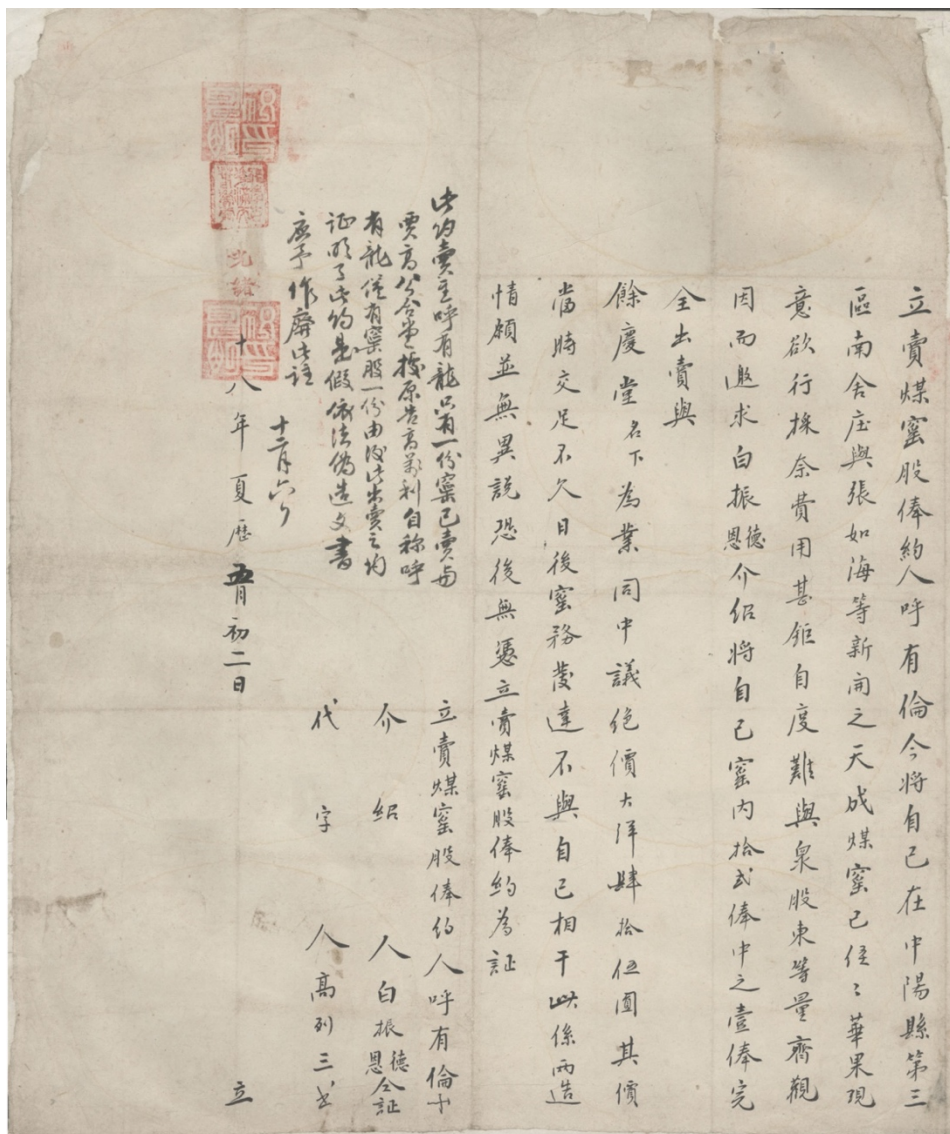 立賣煤窰股俸約人呼有倫今將自己在中陽縣第三
區南舍庄與張如海等新開之天成煤窰已經〻華果現
意欲行採奈費用甚鉅自度難與泉股東等量齊觀
因而邀求白振德恩介紹將自己窰內拾弍俸中之壹俸完
全出賣與
餘慶堂名下為業同中議絕價大洋肆拾伍圓其價
當時交足不欠日後窰務發達不與自己相干此係兩造
情願並無異説恐後無憑立賣煤窰股俸約為証
立賣煤窰股俸約人呼有倫十
介紹人白振德恩仝証
代字人高列三書
此約賣主呼有龍只有一份窰已賣與
賈高公合堂據原告高萬利自称呼
有龍僅有窰股一份由後此出賣之約
証明了此約是假依法偽造文書
應予作廢此註
十二月六日
光緒
十八年夏歷五月初二日
立